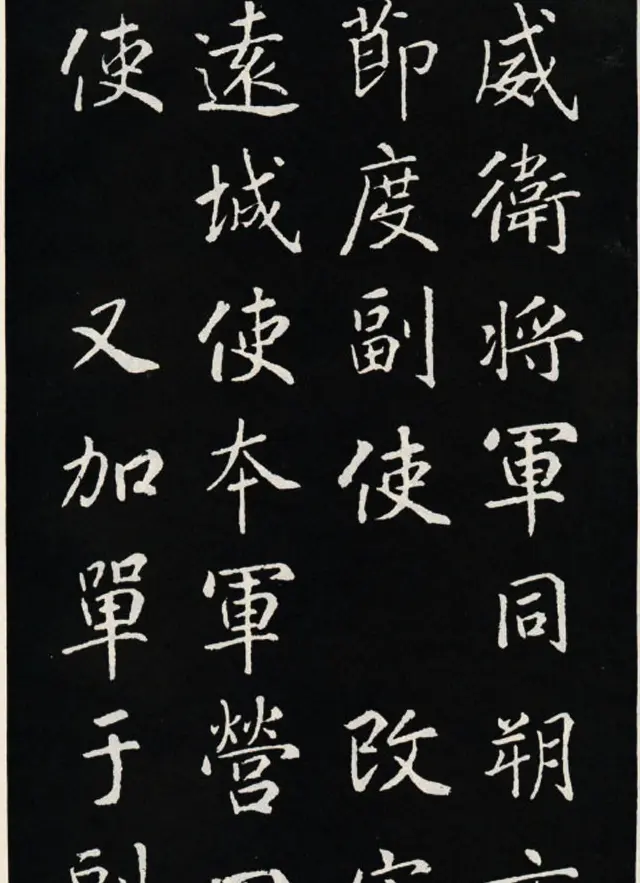 威衛將軍同朔
節度副使 改
遠城使本軍營
使 又加單于副